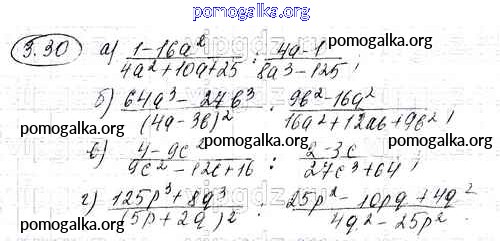 pomogalka.org
3.30 а) (1-16a²)/(4a²+10a+25) : (4a-1)/(8a³-125) ;
pomogalka.org
б) (64a³-27b³)/(4a-3b)² : (9b²-16a²)/(16a²+12ab+9b²) ;
pomogalka.org
pomogalka.org
в) (4-9c²)/(9c²-12c+16) : (2-3c)/(27c³+64) ;
pomogalka.org
г) (125p³+8q³)/(5p+2q)² : (25p²-10pq+4q²)/(4q²-25p²) .
pomogalka.org
pomogalka.org